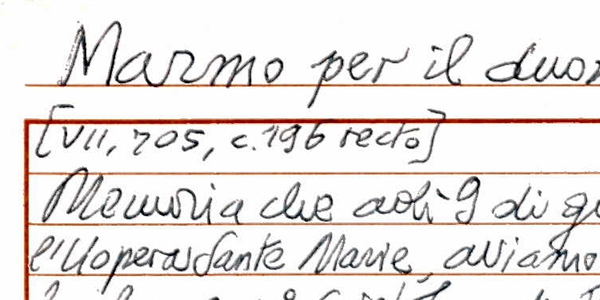 Marmo per il duo
[VII, 705, c. 196 recto]
Memoria che adì 9 di
l'Uopera Sante Marie, aviamo